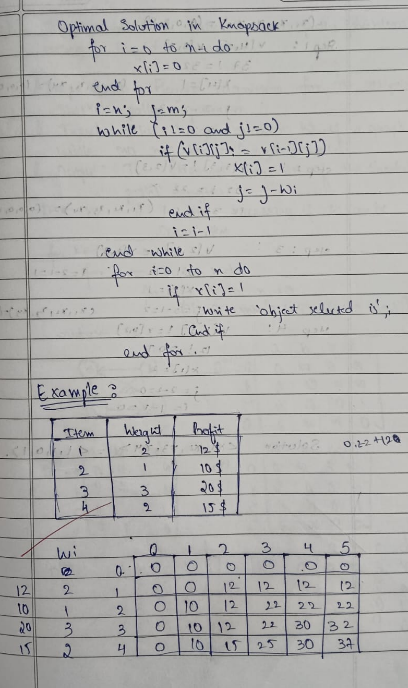 Optimal Solution in Knapsack
for i=0 to n-1 do
x[i]=0
end for
i=n; j=m;
while (i!=0 and j!=0)
if (v[i][j] != v[i-1][j])
x[i]=1
j= j-wi
end if
i=i-1
end while
for i=0 to n do
if x[i]=1
write 'object selected is' i
end if
end for.
Example:
Item Weight Profit
1 2 12$
2 1 10$
3 3 20$
4 2 15$
wi 0 1 2 3 4 5
0 0 0 0 0 0 0
12 2 1 0 0 12 12 12 12
10 1 2 0 10 12 22 22 22
20 3 3 0 10 12 22 30 32
15 2 4 0 10 15 25 30 37